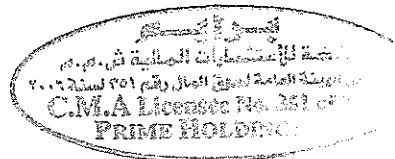 برايم
للاستثمارات المالية ش.م.م
الهيئة العامة لسوق المال رقم ٣٥١ لسنة ٢٠٠٦
C.M.A Licensee No. 351 of
PRIME HOLDING